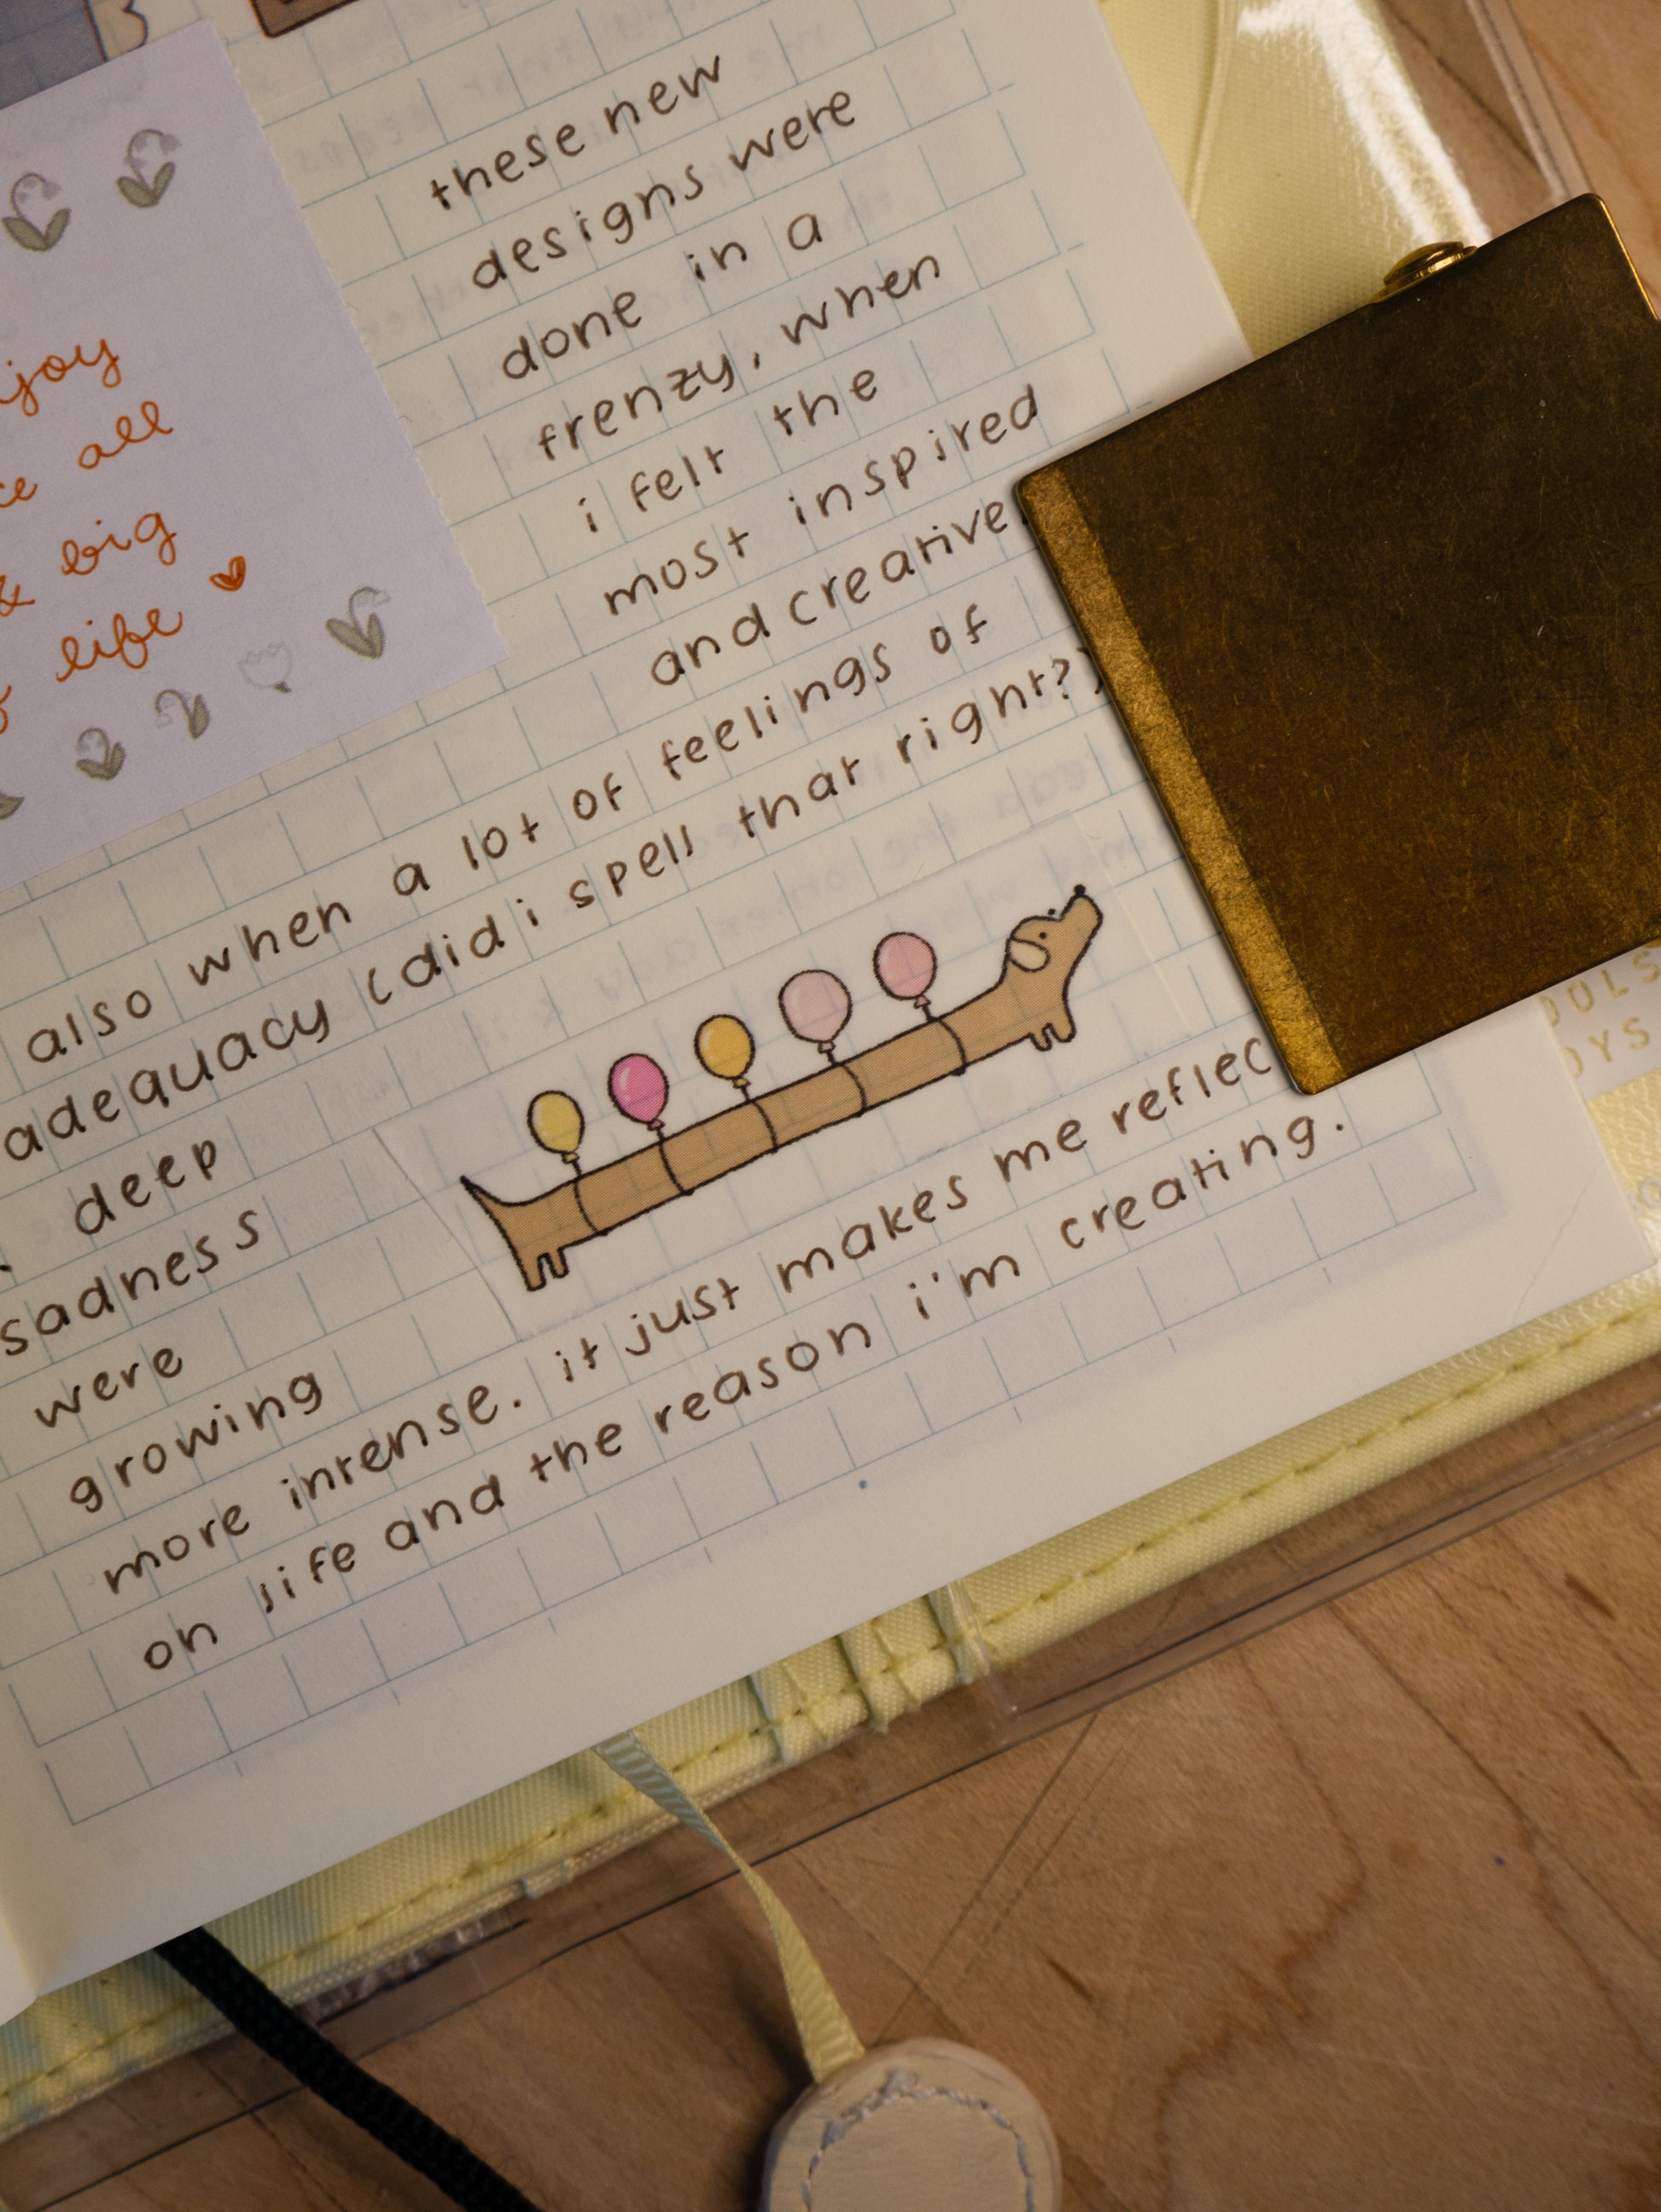 all
& big
life
these new
designs were
done in a
frenzy, when
i felt the
most inspired
and creative.
also when a lot of feelings of
adequacy (did i spell that right?)
deep
sadness
were
growing
more intense. it just makes me reflec
on life and the reason i'm creating.